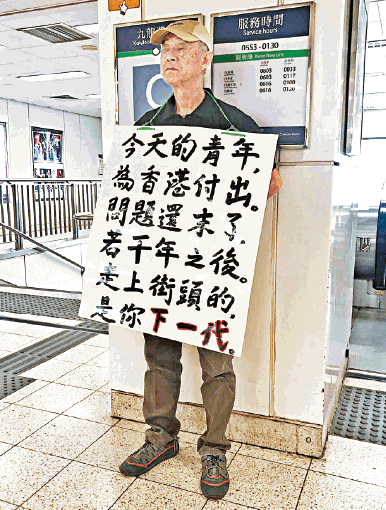 服務時間
Service hours
0553 - 0130
今天的青年，
為香港付出。
問題還未了，
若干年之後。
走上街頭的，
是你下一代。